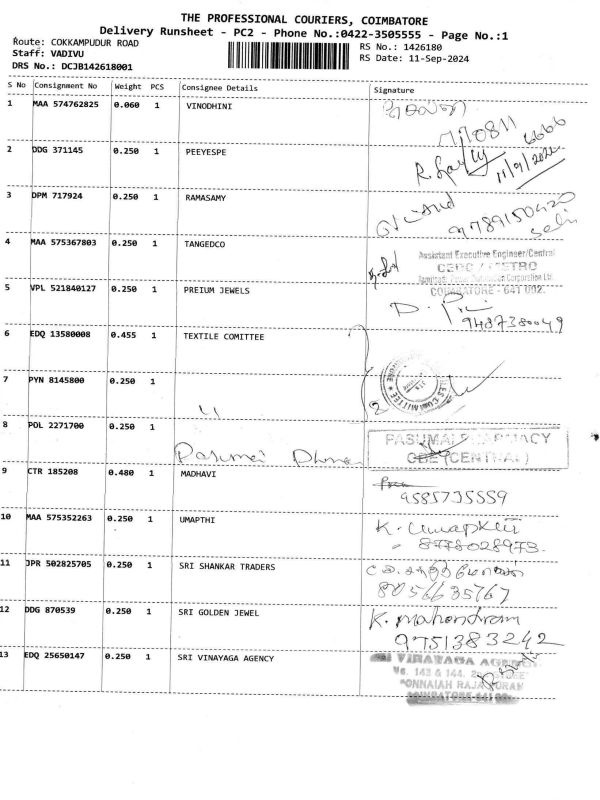 THE PROFESSIONAL COURIERS, COIMBATORE
Delivery Runsheet - PC2 - Phone No.:0422-3505555 - Page No.:1
Route: COKKAMPUDUR ROAD
Staff: VADIVU
DRS No.: DCJB142618001
RS No.: 1426180
RS Date: 11-Sep-2024
S No Consignment No Weight PCS Consignee Details Signature
1 MAA 574762825 0.060 1 VINODHINI
2 DDG 371145 0.250 1 PEEYESPE
11/9/2024
3 DPM 717924 0.250 1 RAMASAMY
9789150420
4 MAA 575367803 0.250 1 TANGEDCO
Assistant Executive Engineer/Central
COIMBATORE - 641 002.
5 VPL 521840127 0.250 1 PREIUM JEWELS
9487380049
6 EDQ 13580008 0.455 1 TEXTILE COMITTEE
7 PYN 8145800 0.250 1
8 POL 2271700 0.250 1
PASUMAI PHARMACY
CBE (CENTRAL)
9 CTR 185208 0.480 1 MADHAVI
9585735559
10 MAA 575352263 0.250 1 UMAPTHI
8978028973.
11 JPR 502825705 0.250 1 SRI SHANKAR TRADERS
8056635767
12 DDG 870539 0.250 1 SRI GOLDEN JEWEL
K. mahendram
9751383242
13 EDQ 25650147 0.250 1 SRI VINAYAGA AGENCY
VINAYAGA AGENCY
No. 143 & 144,
PONNAIAH RAJAPURAM